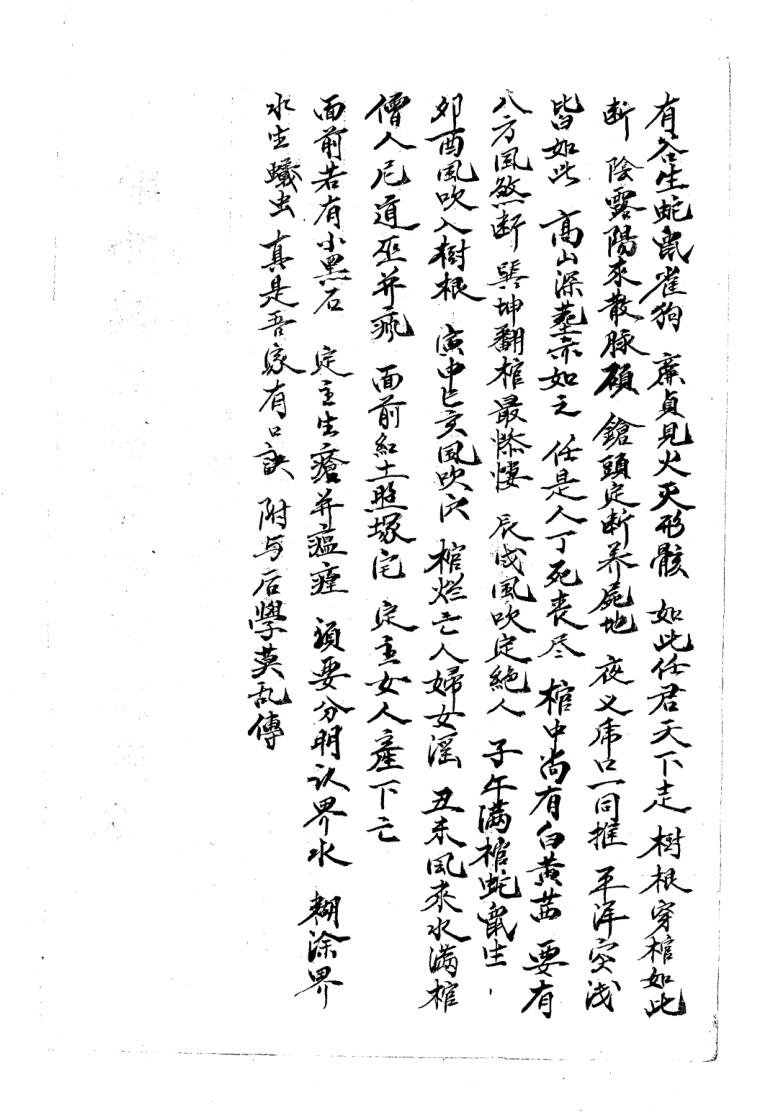 有谷生蛇鼠雀狗 廉貞見火灭形骸 如此任君天下走 樹根穿棺如此
断 陰露陽來散脉硕 鎗頭定断养屍地 夜义虎口一同推 平洋突浅
皆如此 高山深塟亦如之 任是人丁死丧尽 棺中尚有白黄茜 要有
八方風煞断 巽坤翻棺最惨悽 辰戌風吹定絶人 子午满棺蛇鼠生
卯酉風吹入樹根 寅申巳亥風吹穴 棺烂亡人婦女滛 丑未風來水满棺
僧人尼道巫并疯 面前紅土照塚宅 定主女人產下亡
面前若有小黑石 定主生瘡并瘟㾮 須要分明认界水 糊涂界
水生蟻虫 真是吾家有口訣 附与后學莫乱傳